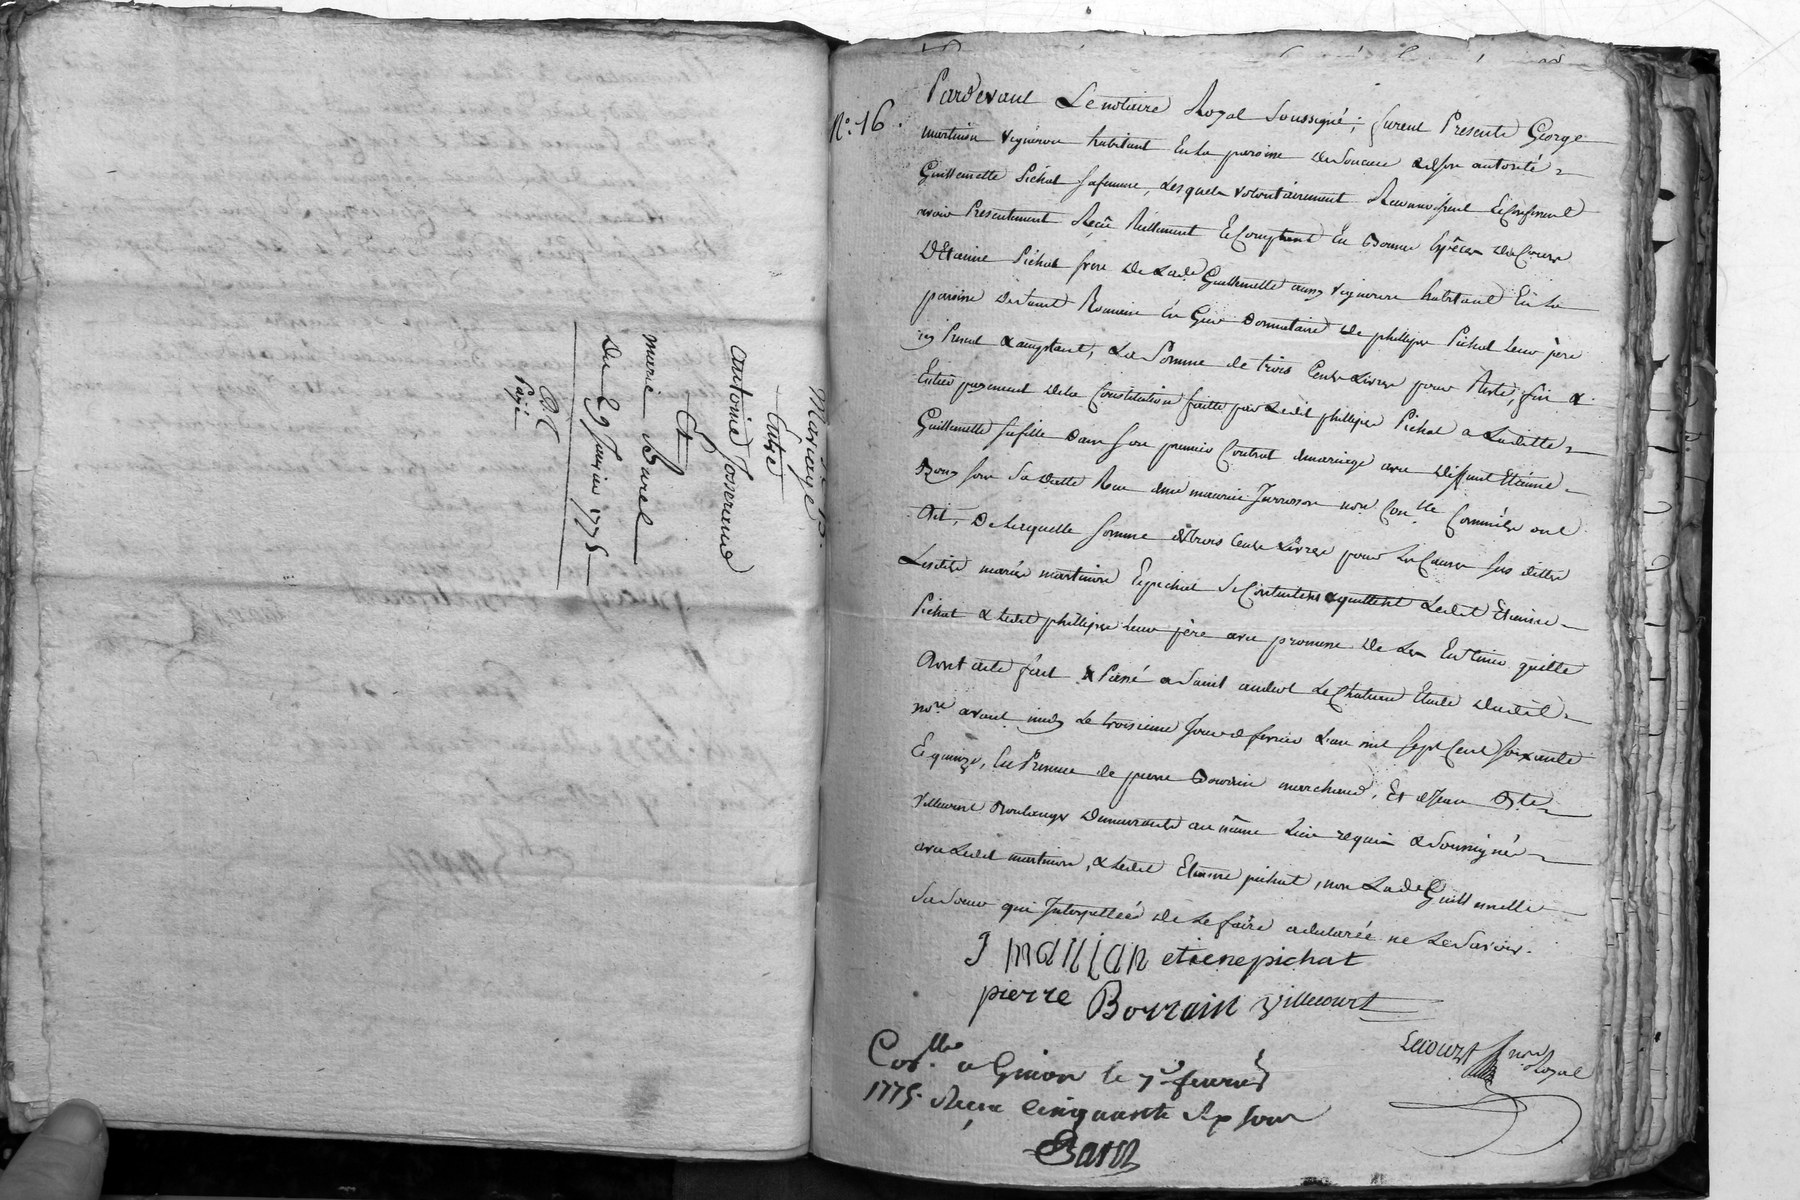 Mariage
Entre
Antoine Josserand
Et
marie Burel
Du 29 Janvier 1775
Payé
N.° 16.
Pardevant Le notaire Royal Soussigné; furent Presents George
martinon vigneron habitant En La paroisse de Soucieu & de Son autorité
Guillemette Pichat sa femme, Lesquels volontairement Reconnoissent & Confessent
avoir Presentement Reçû Réellement & Comptant En Bonnes Especes de Cours
D'Etienne Pichat frere De Lad.e Guillemette aussy vigneron habitant En La
paroisse de Saint Romain En Gier Donnataire de phillipe Pichat Leur pere
icy Present & acceptant, La Somme de trois Cents Livres pour Reste, fin &
Entier payement de la Constitution faitte par Ledit phillipe Pichat a Laditte
Guillemette sa fille dans son premier Contrat de mariage avec deffunt Etienne
Bony
dit, De Laquelle somme de trois Cents Livres pour Les Causes sus dittes
Lesdits mariés martinon & pichat se Contentent & quittent Ledit Etienne
Pichat & Ledit phillipe Leur pere avec promesse De Les En tenir quitte
Dont acte fait & Passé a Saint andeol Le Chateau Etude dudit
no.re avant midy Le troisieme Jour de fevrier L'an mil Sept Cent soixante
& quinze, En Presence de pierre Bourrin marchand, Et de Jean B.te
Villecourt Boulanger Demeurants au même Lieu requis & Soussignés
avec Ledit martinon, & Ledit Etienne pichat, non Lad.e Guillemette
Sa Soeur qui Interpellée de Le faire a declarée ne Le Savoir.
etiene pichat
pierre Borrain Villecourt
Lecourt no.re Royal
Con.llé a Givors le 7 fevrier
1775. Reçu cinquante Six sous